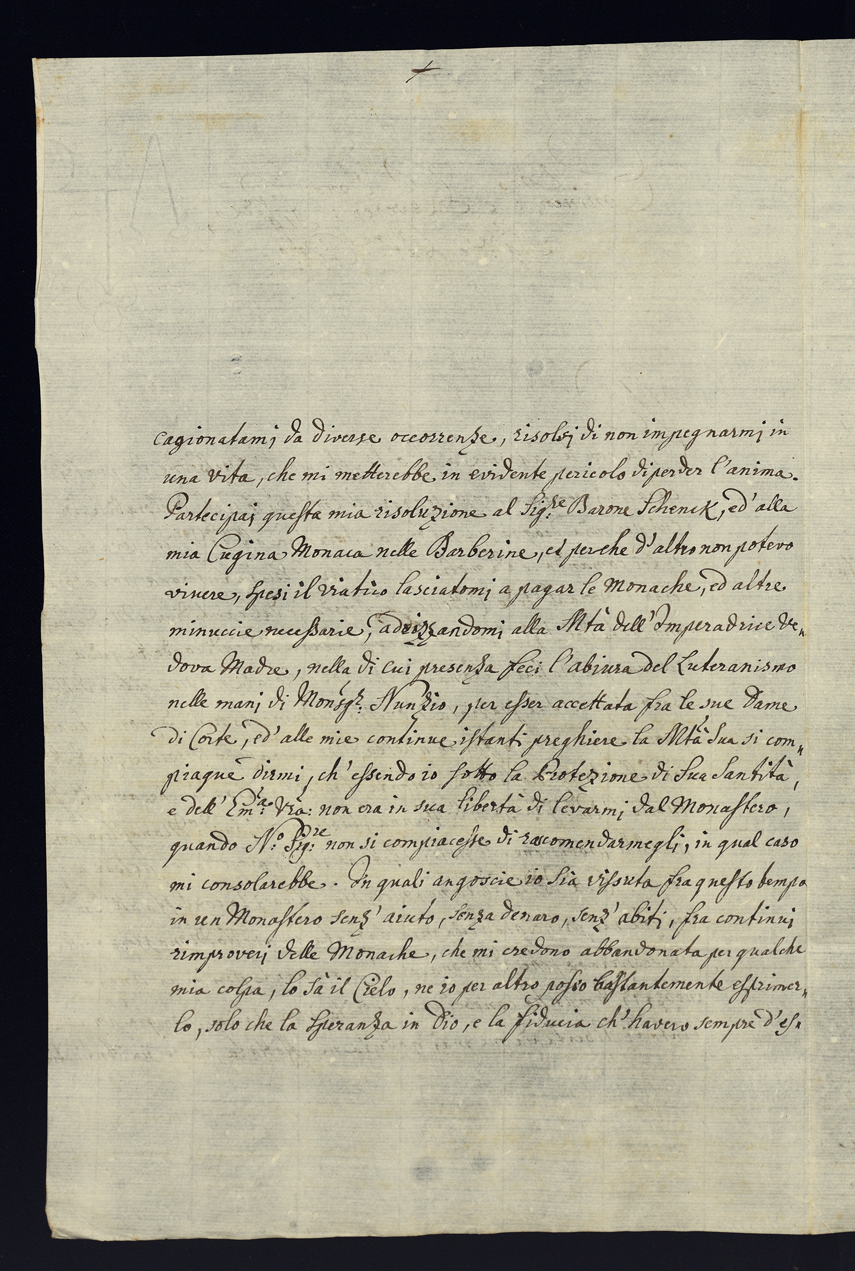 cagionatami da diverse occorrenze, risolsi di non impegnarmi in
una vita, che mi metterebbe in evidente pericolo di perder l'anima.
Partecipai questa mia risoluzione al Sig.re Barone Schenck, ed' alla
mia Cugina Monaca nelle Barberine, et perche d'altro non potevo
vivere, spesi il viatico lasciatomi a pagar le Monache, ed altre
minuccie necessarie, adrizzandomi alla Mtà dell'Imperadrice Ve-
dova Madre, nella di cui presenza feci l'abiura del Luteranismo
nelle mani di Monsigr: Nunzio, per esser accettata fra le sue Dame
di Corte, ed' alle mie continue istanti preghiere la Mtà Sua si com-
piaque dirmi, ch'essendo io sotto la Protezione di Sua Santità,
e dell' Em:za Vra: non era in sua libertà di levarmi dal Monastero,
quando N.o Sig.re non si compiacesse di racomendarmegli, in qual caso
mi consolarebbe. In quali angoscie io sia vissuta fra questo tempo
in un Monastero senz' aiuto, senza denaro, senz' abiti, fra continui
rimproveri delle Monache, che mi credono abbandonata per qualche
mia colpa, lo sà il Cielo, ne io per altro posso bastantemente esprimer-
lo, solo che la speranza in Dio, e la fiducia ch' havero sempre d'es-